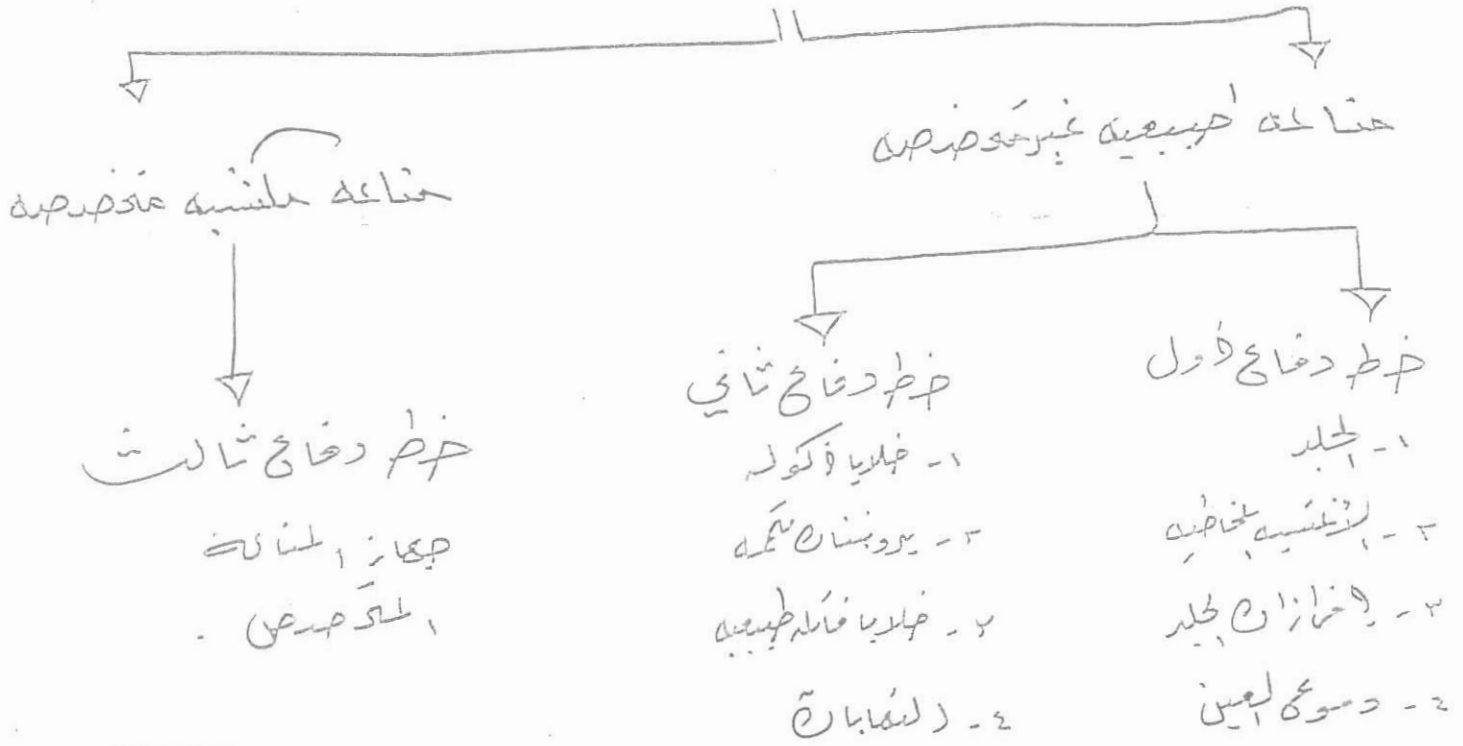 مناعه طبيعيه غير متخصصه
مناعه مكتسبه متخصصه
خط دفاع أول
١- الجلد
٢- الأغشيه المخاطيه
٣- إفرازات الجلد
٤- دموع العين
خط دفاع ثاني
١- خلايا أكوله
٢- بروتينات متممه
٣- خلايا قاتله طبيعيه
٤- التهابات
خط دفاع ثالث
جهاز المناعة
المتخصص .